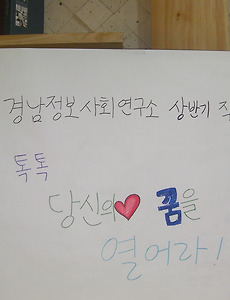 경남정보사회연구소 상반기 직
톡톡
당신의 꿈을
열어라!